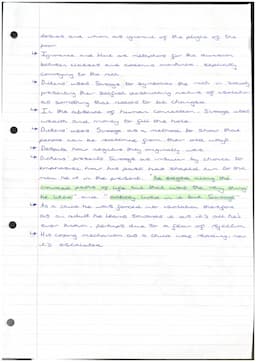 classes and whom are ignorant of the plights of the
poor
↳ Ignorance and Want are metaphors for the
between classes and , especially
to the rich.
↳ Dickens uses Scrooge to symbolise the rich in society
presenting their selfish nature of isolation
as something that needs to be changed.
↳ In the absence of human connection, Scrooge uses
wealth and money to fill the hole.
↳ Dickens' uses Scrooge as a method to show that
people can be redeemed from their old ways
↳ Despite how negative they originally were
↳ Dickens presents Scrooge as insular by choice to
emphasise how his past had shaped him to the
man he is in the present. "to edge along the
crowded paths of life but that was the very thing
he liked" and "nobody but Scrooge"
↳ As a child he was forced into isolation therefore
as an adult he leans towards it as it's all he's
ever known, perhaps due to a fear of rejection
↳ His coping mechanism as a child was reading, now
it's